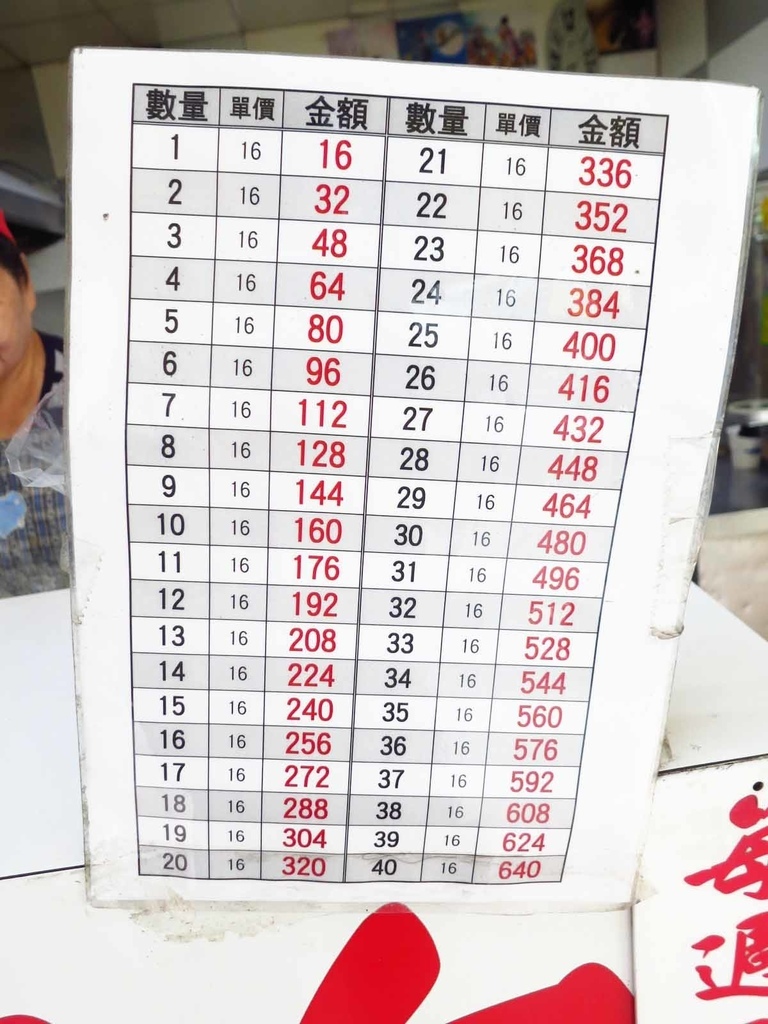 數量 單價 金額 數量 單價 金額
1 16 16 21 16 336
2 16 32 22 16 352
3 16 48 23 16 368
4 16 64 24 16 384
5 16 80 25 16 400
6 16 96 26 16 416
7 16 112 27 16 432
8 16 128 28 16 448
9 16 144 29 16 464
10 16 160 30 16 480
11 16 176 31 16 496
12 16 192 32 16 512
13 16 208 33 16 528
14 16 224 34 16 544
15 16 240 35 16 560
16 16 256 36 16 576
17 16 272 37 16 592
18 16 288 38 16 608
19 16 304 39 16 624
20 16 320 40 16 640
每
週